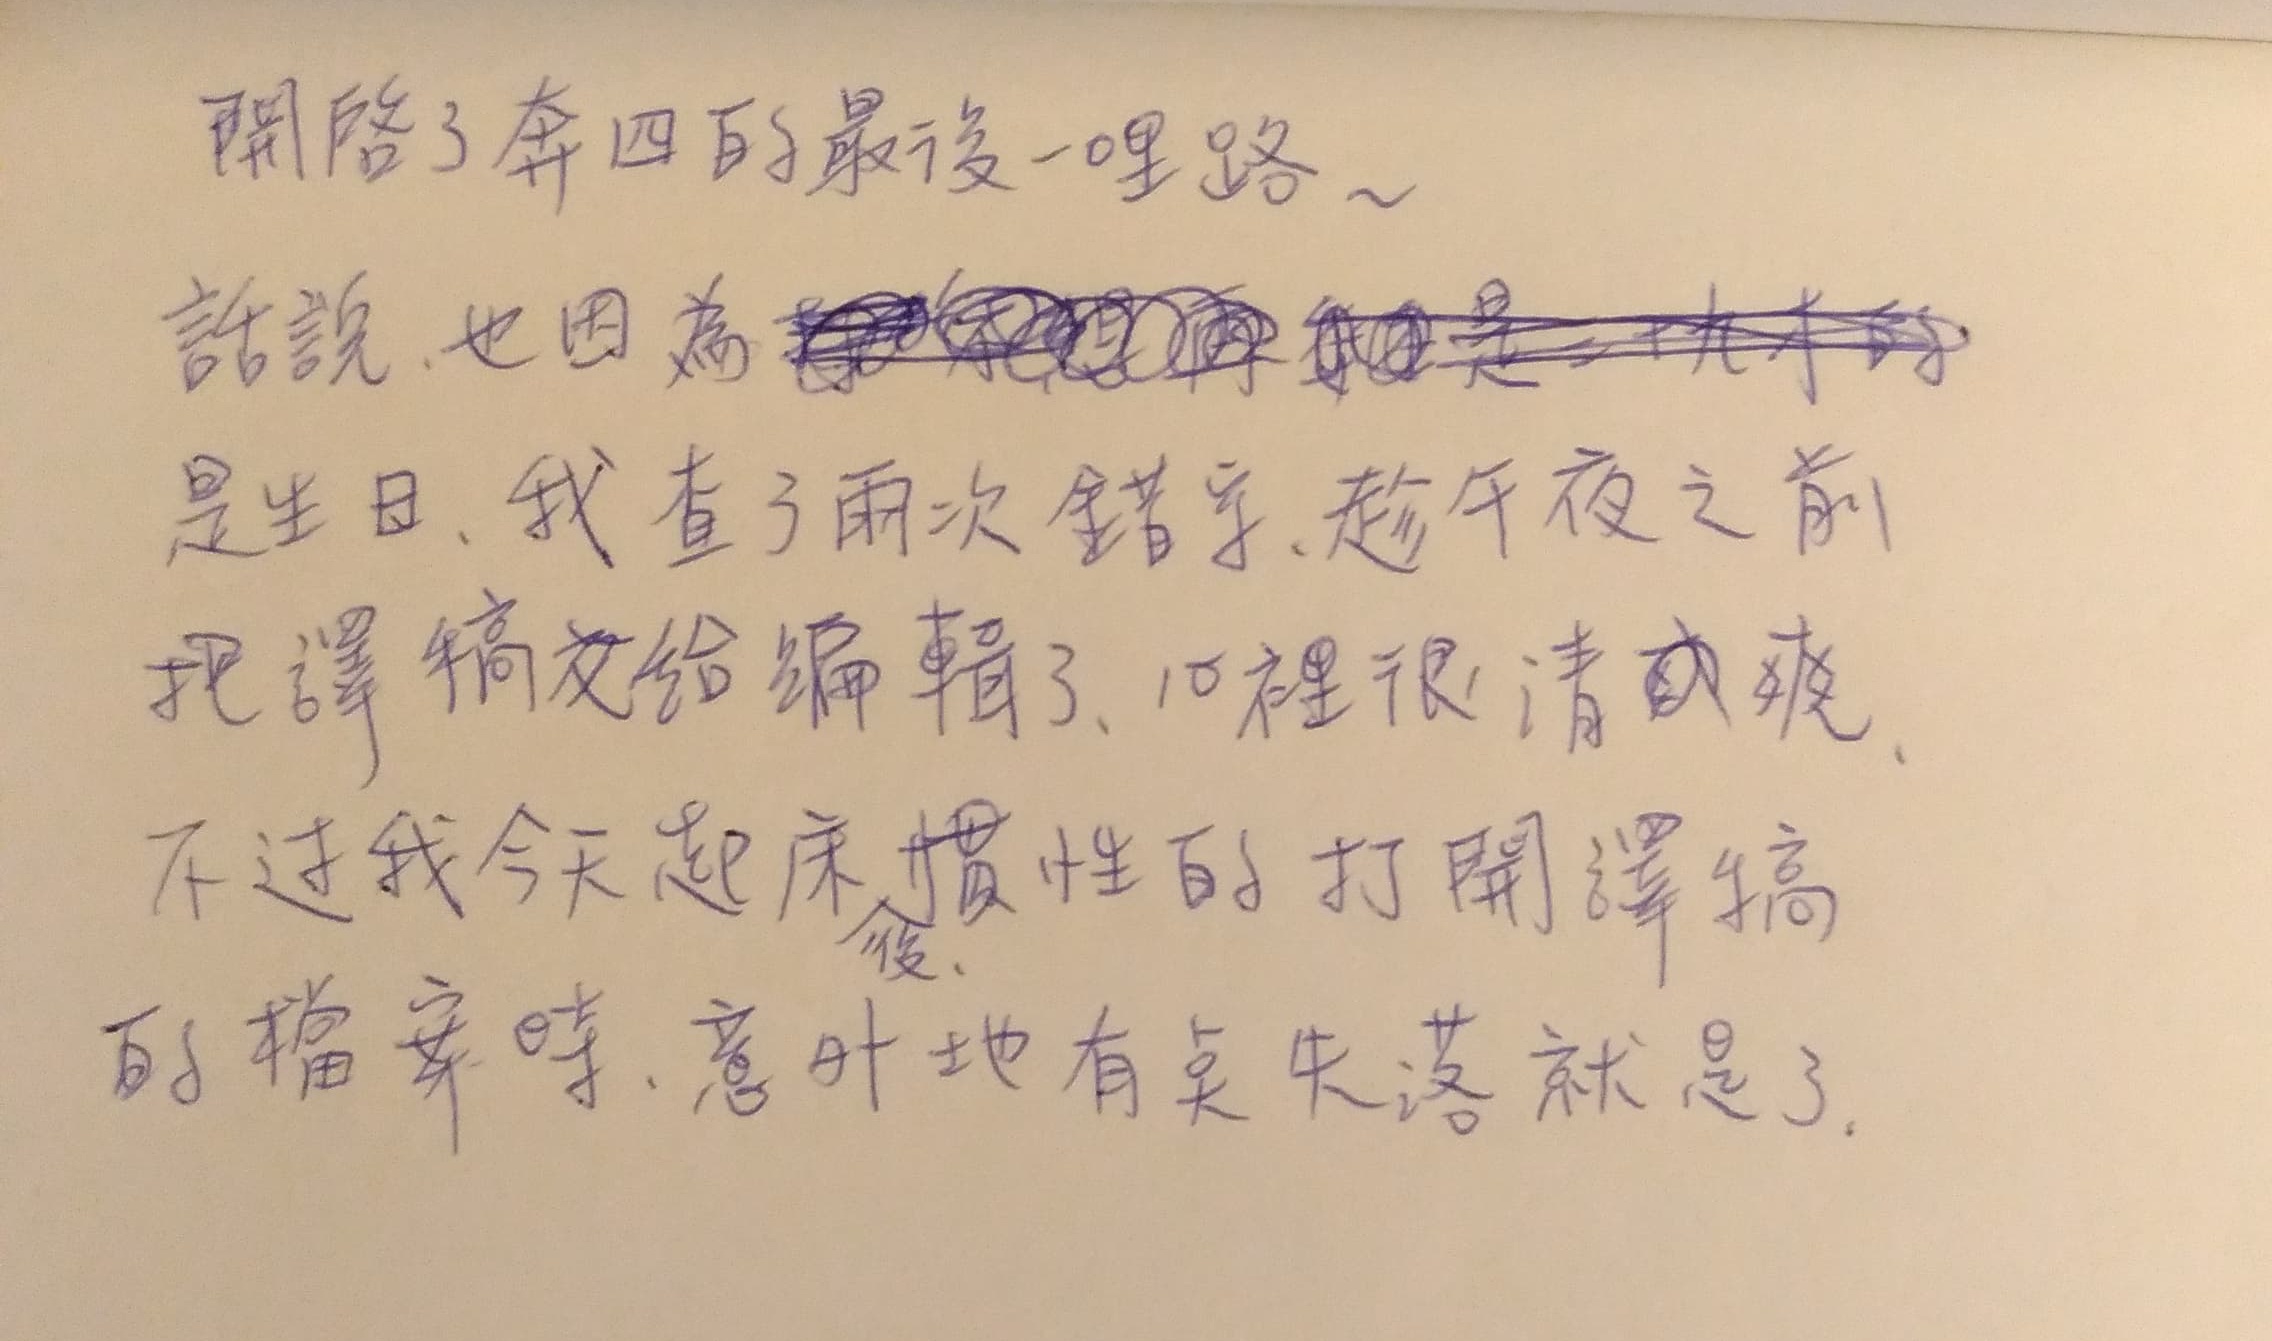 開啓了奔四的最後一哩路~
話說、也因為 是二十九才的
是生日、我查了兩次錯字、趁午夜之前
把譯稿交給編輯了、心裡很清爽、
不过我今天起床後、慣性的打開譯稿
的檔案時、意外地有点失落就是了.